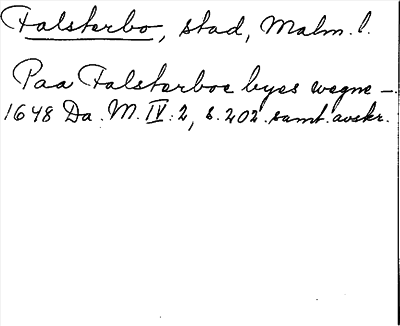 Falsterbo, stad, Malm. l.
Paa Falsterboe byes wegne —.
1648 Da. M. IV: 2, s. 202. samt. avskr.